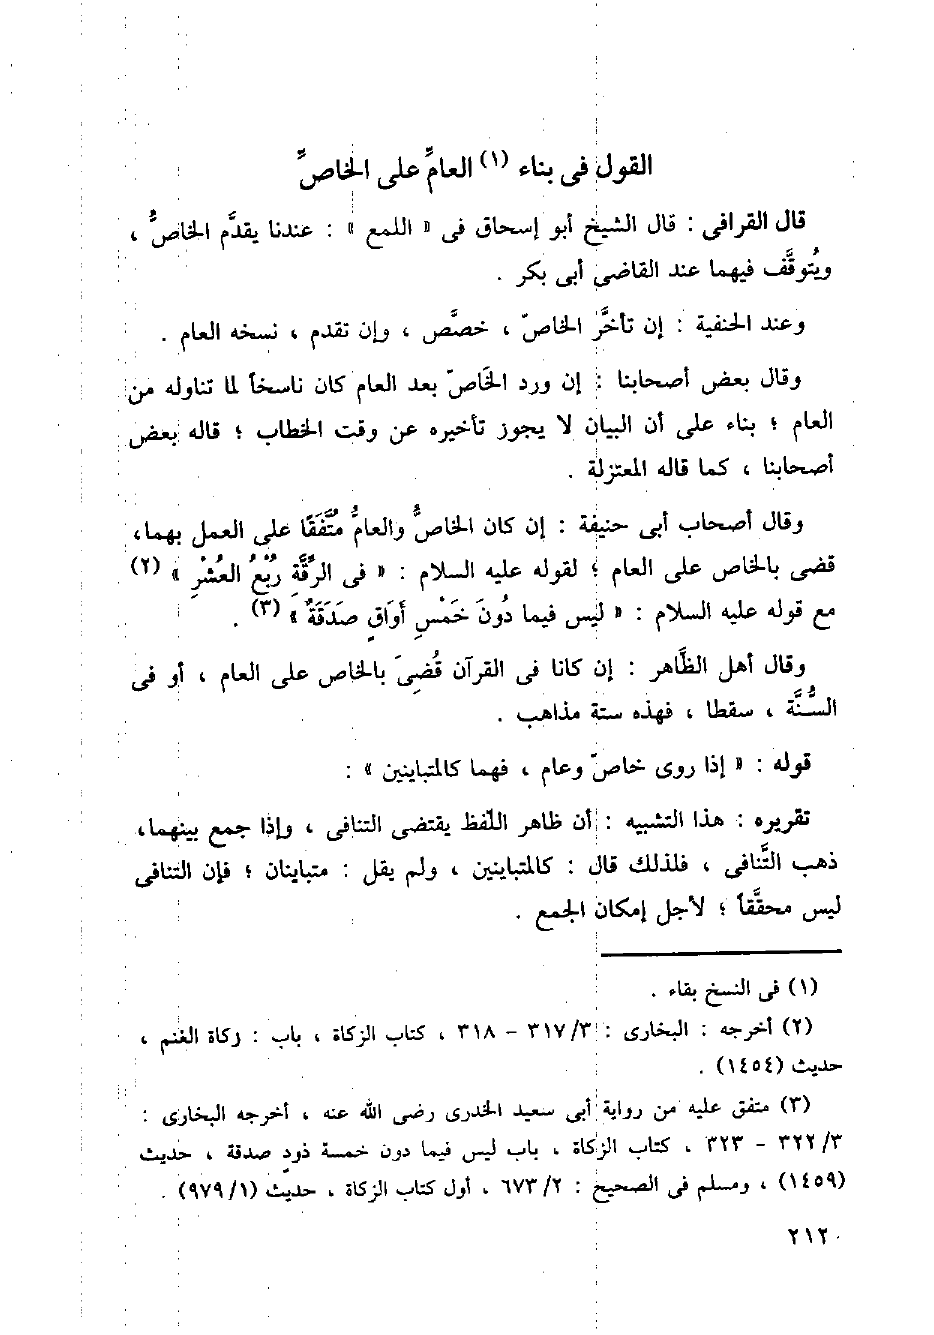 القول فى بناء (١) العامِّ على الخاصِّ
قال القرافى : قال الشيخ أبو إسحاق فى « اللمع » : عندنا يقدَّم الخاصُّ ،
ويُتوقَّف فيهما عند القاضى أبى بكر .
وعند الحنفية : إن تأخَّر الخاصّ ، خصَّص ، وإن تقدم ، نسخه العام .
وقال بعض أصحابنا : إن ورد الخَاصّ بعد العام كان ناسخاً لما تناوله من
العام ؛ بناء على أن البيان لا يجوز تأخيره عن وقت الخطاب ؛ قاله بعض
أصحابنا ، كما قاله المعتزلة .
وقال أصحاب أبى حنيفة : إن كان الخاصُّ والعامُّ مُتَّفَقًا على العمل بهما،
قضى بالخاص على العام ؛ لقوله عليه السلام : « فى الرِّقَّةِ رُبْعُ العُشْرِ » (٢)
مع قوله عليه السلام : « ليس فيما دُونَ خَمْسِ أَوَاقٍ صَدَقَةٌ » (٣) .
وقال أهل الظَّاهر : إن كانا فى القرآن قُضِىَ بالخاص على العام ، أو فى
السُّنَّة ، سقطا ، فهذه ستة مذاهب .
قوله : « إذا روى خاصّ وعام ، فهما كالمتباينين » :
تقريره : هذا التشبيه : أن ظاهر اللّفظ يقتضى التنافى ، وإذا جمع بينهما،
ذهب التَّنافى ، فلذلك قال : كالمتباينين ، ولم يقل : متباينان ؛ فإن التنافى
ليس محقَّقاً ؛ لأجل إمكان الجمع .
(١) فى النسخ بقاء .
(٢) أخرجه : البخارى : ٣/ ٣١٧ - ٣١٨ ، كتاب الزكاة ، باب : زكاة الغنم ،
حديث (١٤٥٤) .
(٣) متفق عليه من رواية أبى سعيد الخدرى رضى الله عنه ، أخرجه البخارى :
٣/ ٣٢٢ - ٣٢٣ ، كتاب الزكاة ، باب ليس فيما دون خمسة ذودٍ صدقة ، حديث
(١٤٥٩) ، ومسلم فى الصحيح : ٢/ ٦٧٣ ، أول كتاب الزكاة ، حديث (١/ ٩٧٩) .
٢١٢٠